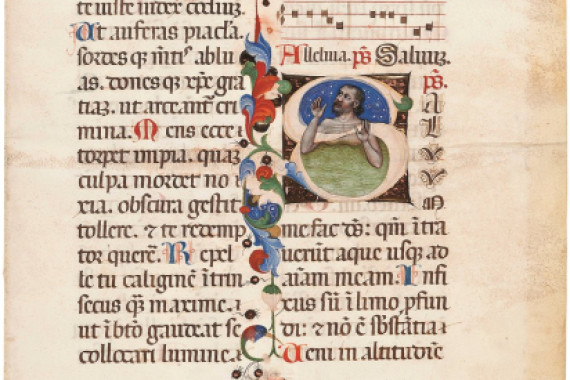 te iuste iudex cordiuz.
Ut auferas piac̄la.
sordes qꝫ m̄tiſ ablu
as. dones qꝫ xp̄e gr̄a
tiaꝫ. ut arceant̄ cri
mina. Mens ecce
torpet impia. quaꝫ
culpa mordet no
xia. obscura gestit
tollere. ⁊ te redemp
tor querē. Repel
le tu caliginē ītrin
secus qꝫ maxime.
ut ī bt̄o gaudeat se
collocari lumine.
Alleluia. pſ Saluuꝫ.
pſ.
S
A
L
V
V
M
me fac dſ: qm̄ ītra
uerūt aque usqꝫ ad
aīam meam. Infi
xus sū ī limo pfun
di: ⁊ nō ē sb̄stātia
Ueni in altitudinē